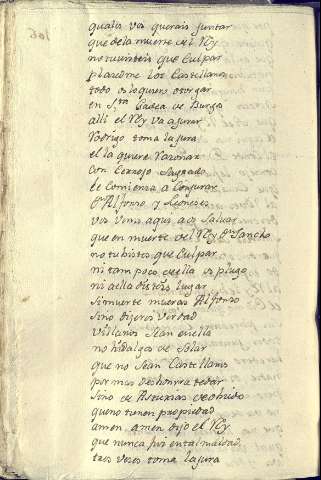 quales vos querais juntar
que de la muerte del Rey
no tuvisteis que Culpar
plaze me los Castellanos
todo os lo quiero otorgar
en Sta Gadea de Burgos
alli el Rey va a jurar
Rodrigo toma la jura
el la quiere razonar
con Cerrojo Sagrado
le Comienza a Conjurar
Dn Alfonso y Leoneses
vos venis aqui a os Salvar
que en muerte del Rey Dn Sancho
no tubistes que Culpar
ni tam poco della os plugo
ni a ella distes lugar
Si muerte mueras Alfonso
Sino dijeres Verdad
Villanos Sean en ella
no hidalgos de Solar
que no Sean Castellanos
por mas deshonrra te dar
Sino de Asturias de obiedo
que no tienen propiedad
amen amen dijo el Rey
que nunca fui en tal maldad
tres vezes toma la jura